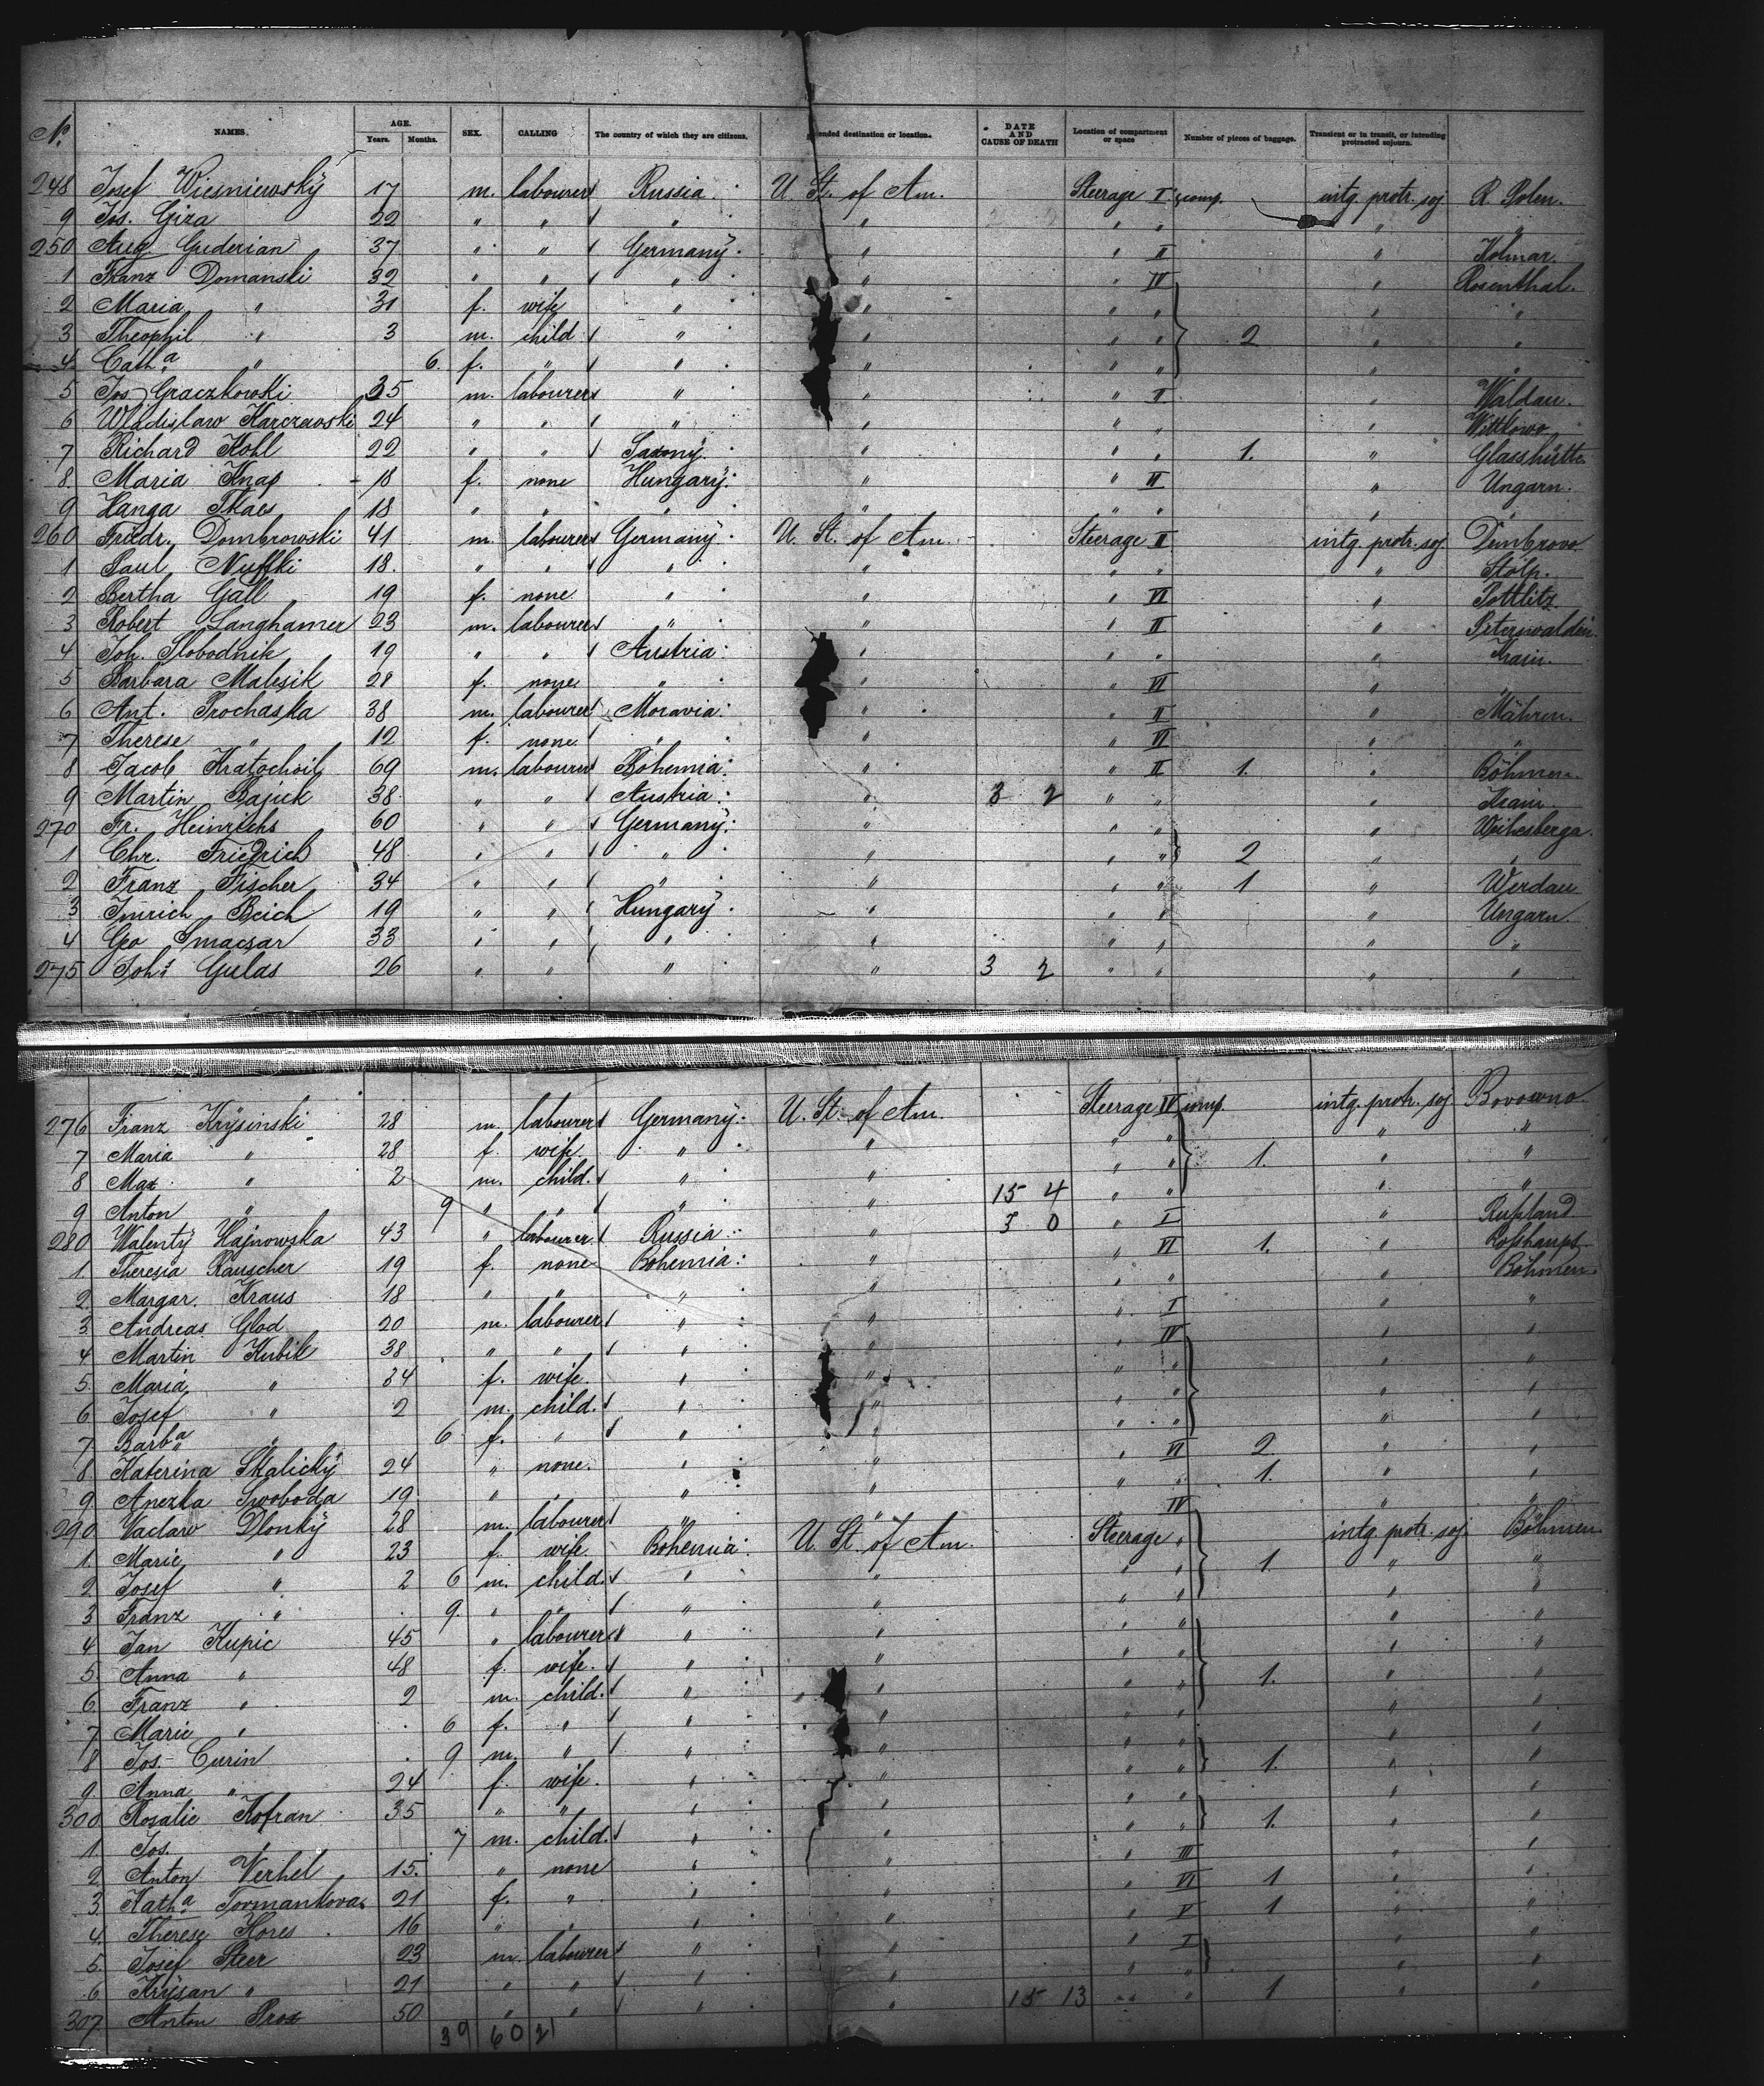 No. NAMES. AGE. Years. Months. SEX. CALLING The country of which they are citizens. Intended destination or location. DATE AND CAUSE OF DEATH Location of compartment or space Number of pieces of baggage. Transient or in transit, or intending protracted sojourn.
248 Josef Wiesniewsky 17 m. labourer Russia. U. St. of Am. Steerage I comp. intg. protr. soj R. Polen.
9 Jos. Giza 22 " " " " " " " "
250 Aug Guderian 37 " " Germany. " " II " Kolmar.
1 Franz Domanski 32 " " " " " IV " Rosenthal.
2 Maria " 31 f. wife " " " " " "
3 Theophil " 3 m. child " " " " 2 " "
4 Cath.a " 6. f. " " " " " " "
5 Jos. Graczkowski 35 m. labourer " " " II " Waldau.
6 Wladislaw Karczawski 24 " " " " " " " Wittkowo
7 Richard Kohl 22 " " Saxony. " " " 1. " Glasshütte
8. Maria Knap 18 f. none Hungary. " " II " Ungarn.
9 Hanga Tkacs 18 " " " " " " " "
260 Friedr. Dombrowski 41 m. labourer Germany. U. St. of Am. Steerage II intg. protr. soj. Dembrowo
1 Paul Nuffki 18. " " " " " " " Stolp.
2 Bertha Gall 19 f. none " " " VI " Pottlitz
3 Robert Langhamer 23 m. labourer " " " II " Peterswalden.
4 Joh. Slobodnik 19 " " Austria. " " " " Krain.
5 Barbara Malesik 28 f. none " " " VI " "
6 Ant. Prochaska 38 m. labourer Moravia. " " II " Mähren.
7 Therese " 12 f. none " " " VI " "
8 Jacob Kratochvil 69 m. labourer Bohemia. " " II 1. " Böhmen.
9 Martin Bajuk 38 " " Austria. " 3 2 " " " Krain.
270 Fr. Heinrichs 60 " " Germany. " " " "
1 Chr. Friedrich 48 " " " " " " 2 " "
2 Franz Fischer 34 " " " " " " 1 " Werdau
3 Imrich Beich 19 " " Hungary. " " " " Ungarn.
4 Geo Smacsar 33 " " " " " " " "
275 Johs. Gulas 26 " " " " 3 2 " " " "
276 Franz Krysinski 28 m. labourer Germany. U. St. of Am. Steerage IV comp. intg. protr. soj Borowno
7 Maria " 28 f. wife. " " " " " "
8 Max " 2 m. child. " " " " 1. " "
9 Anton " 9 " " " " 15 4 " " " "
280 Walenty Hajnowska 43 " labourer Russia. " 3 0 " I " Rußland
1. Theresia Rauscher 19 f. none Bohemia. " " VI 1. " Roßhaupt
2. Margar. Kraus 18 " " " " " " " Böhmen
3 Andreas Glod 20 m. labourer " " " I " "
4 Martin Kubik 38 " " " " " IV " "
5. Maria " 34 f. wife. " " " " " "
6 Josef " 2 m. child. " " " " " "
7 Barb.a " 6 f. " " " " " " "
8. Katerina Skalický 24 " none. " " " VI 2 " "
9 Anezka Swoboda 19 " " " " " " 1. " "
290 Vaclaw Dlonky 28 m. labourer " " " IV " "
1. Marie " 23 f. wife. Bohemia. U. St. of Am. Steerage " intg. protr. soj. Böhmen
2 Josef " 2 6 m. child. " " " " 1 " "
3 Franz " 9. " " " " " " " "
4 Jan Kupic 45 " labourer " " " " " "
5. Anna " 48 f. wife. " " " " " "
6. Franz " 2 m. child. " " " " 1. " "
7 Marie " 6 f. " " " " " " "
8 Jos. Curin 9 m. " " " " " " "
9 Anna " 24 f. wife. " " " " 1. " "
300 Rosalie Kofran 35 " " " " " " " "
1. Jos. " 7 m. child. " " " " 1. " "
2 Anton Verhel 15. " none " " " III " "
3 Kath.a Tormankova 21 f. " " " " VI 1 " "
4. Therese Kores 16 " " " " " V 1 " "
5. Josef Steer 23 m. labourer " " " I " "
6 Krysan " 21 " " " " " " " "
307 Anton Prox 50 " " " " 15 13 " " 1 " "
39 60 21